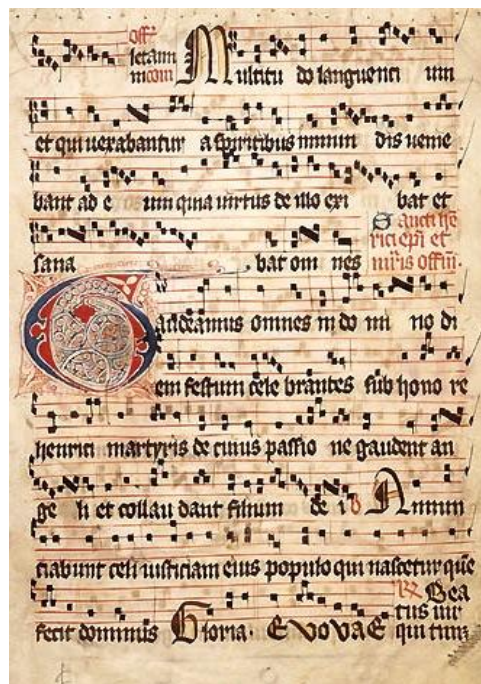 Offꝫ
letam
ini com Multitu do languenti um
et qui uexabantur a spiritibus inmun dis uenie
bant ad e um quia uirtus de illo exi bat et
sana bat om nes
Sancti hē
rici epi et
mr̄is offm̄.
Gaudeamus omnes in do mi no di
em festum cele brantes sub hono re
henrici martyris de cuius passio ne gaudent an
ge li et collau dant filium de i Annun
ciabunt celi iusticiam eius populo qui nascetur quē
fecit dominus Gloria. EVOVAE
Bea
tus uir
qui tim